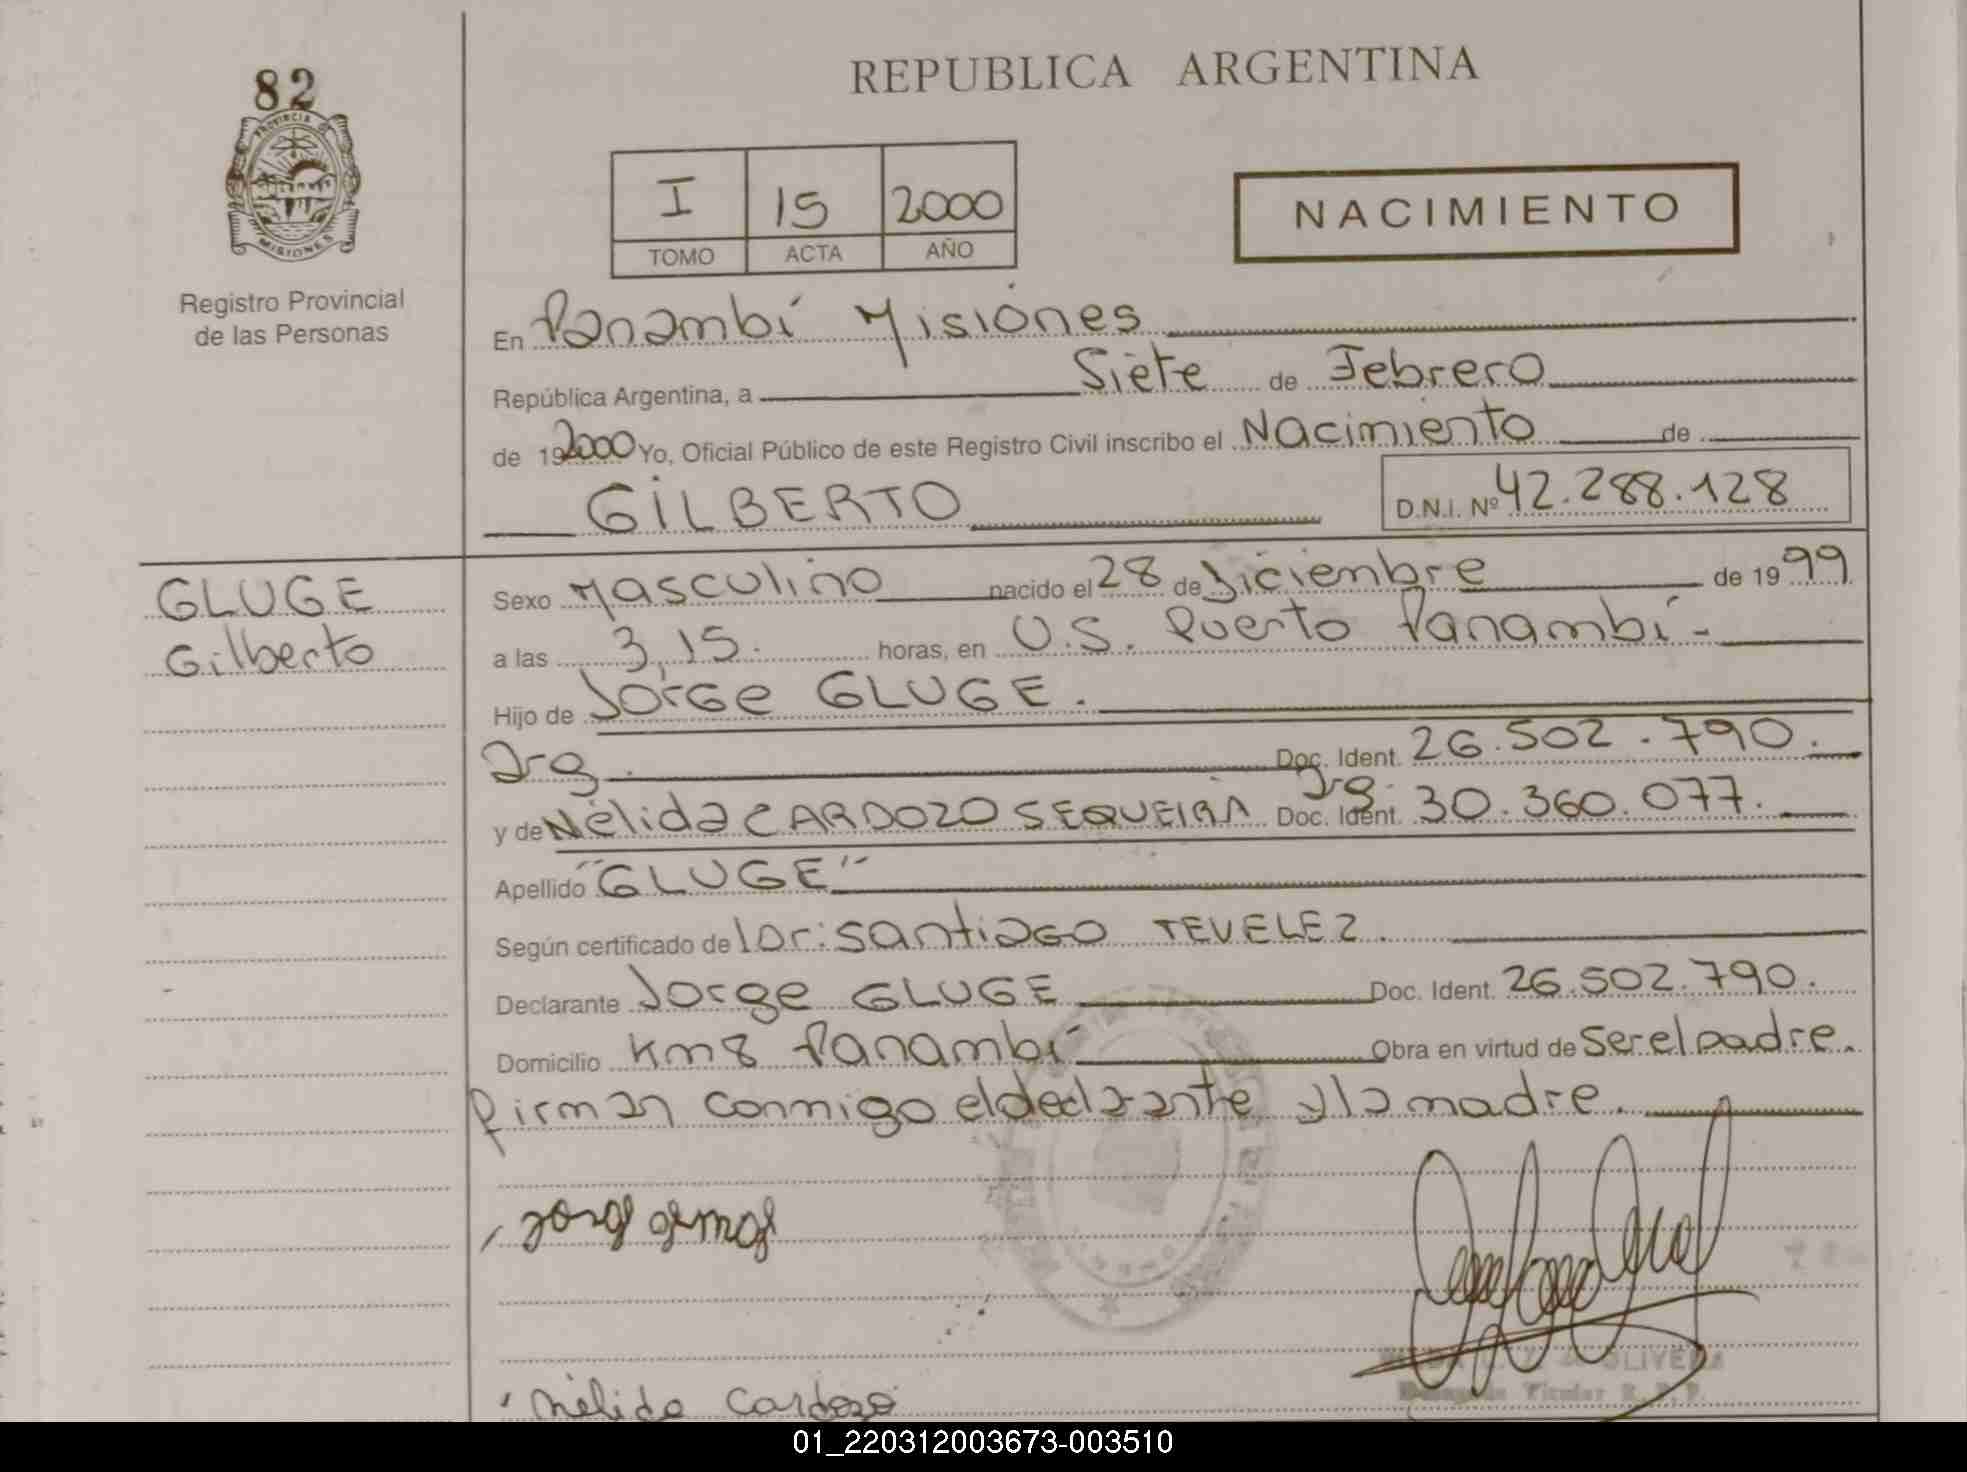 82
PROVINCIA DE
MISIONES
Registro Provincial
de las Personas
REPUBLICA ARGENTINA
I 15 2000
TOMO ACTA AÑO
NACIMIENTO
En Panambí Misiones
República Argentina, a Siete de Febrero
de 192000 Yo, Oficial Público de este Registro Civil inscribo el Nacimiento de
GILBERTO D.N.I. Nº 42.288.128
GLUGE
Gilberto
Sexo Masculino nacido el 28 de Diciembre de 1999
a las 3,15. horas, en U.S. Puerto Panambí-
Hijo de Jorge GLUGE.
Arg. Doc. Ident. 26.502.790.
y de Nélida CARDOZO SEQUEIRA Arg. Doc. Ident. 30.360.077.
Apellido "GLUGE"
Según certificado de santiago TEVELEZ.
Declarante Jorge GLUGE Doc. Ident. 26.502.790.
Domicilio Km8 Panambí Obra en virtud de ser el padre.
firman conmigo el declarante y la madre.
OLIVERA
Titular R.P.P.
Nélida Cardozo
01_220312003673-003510